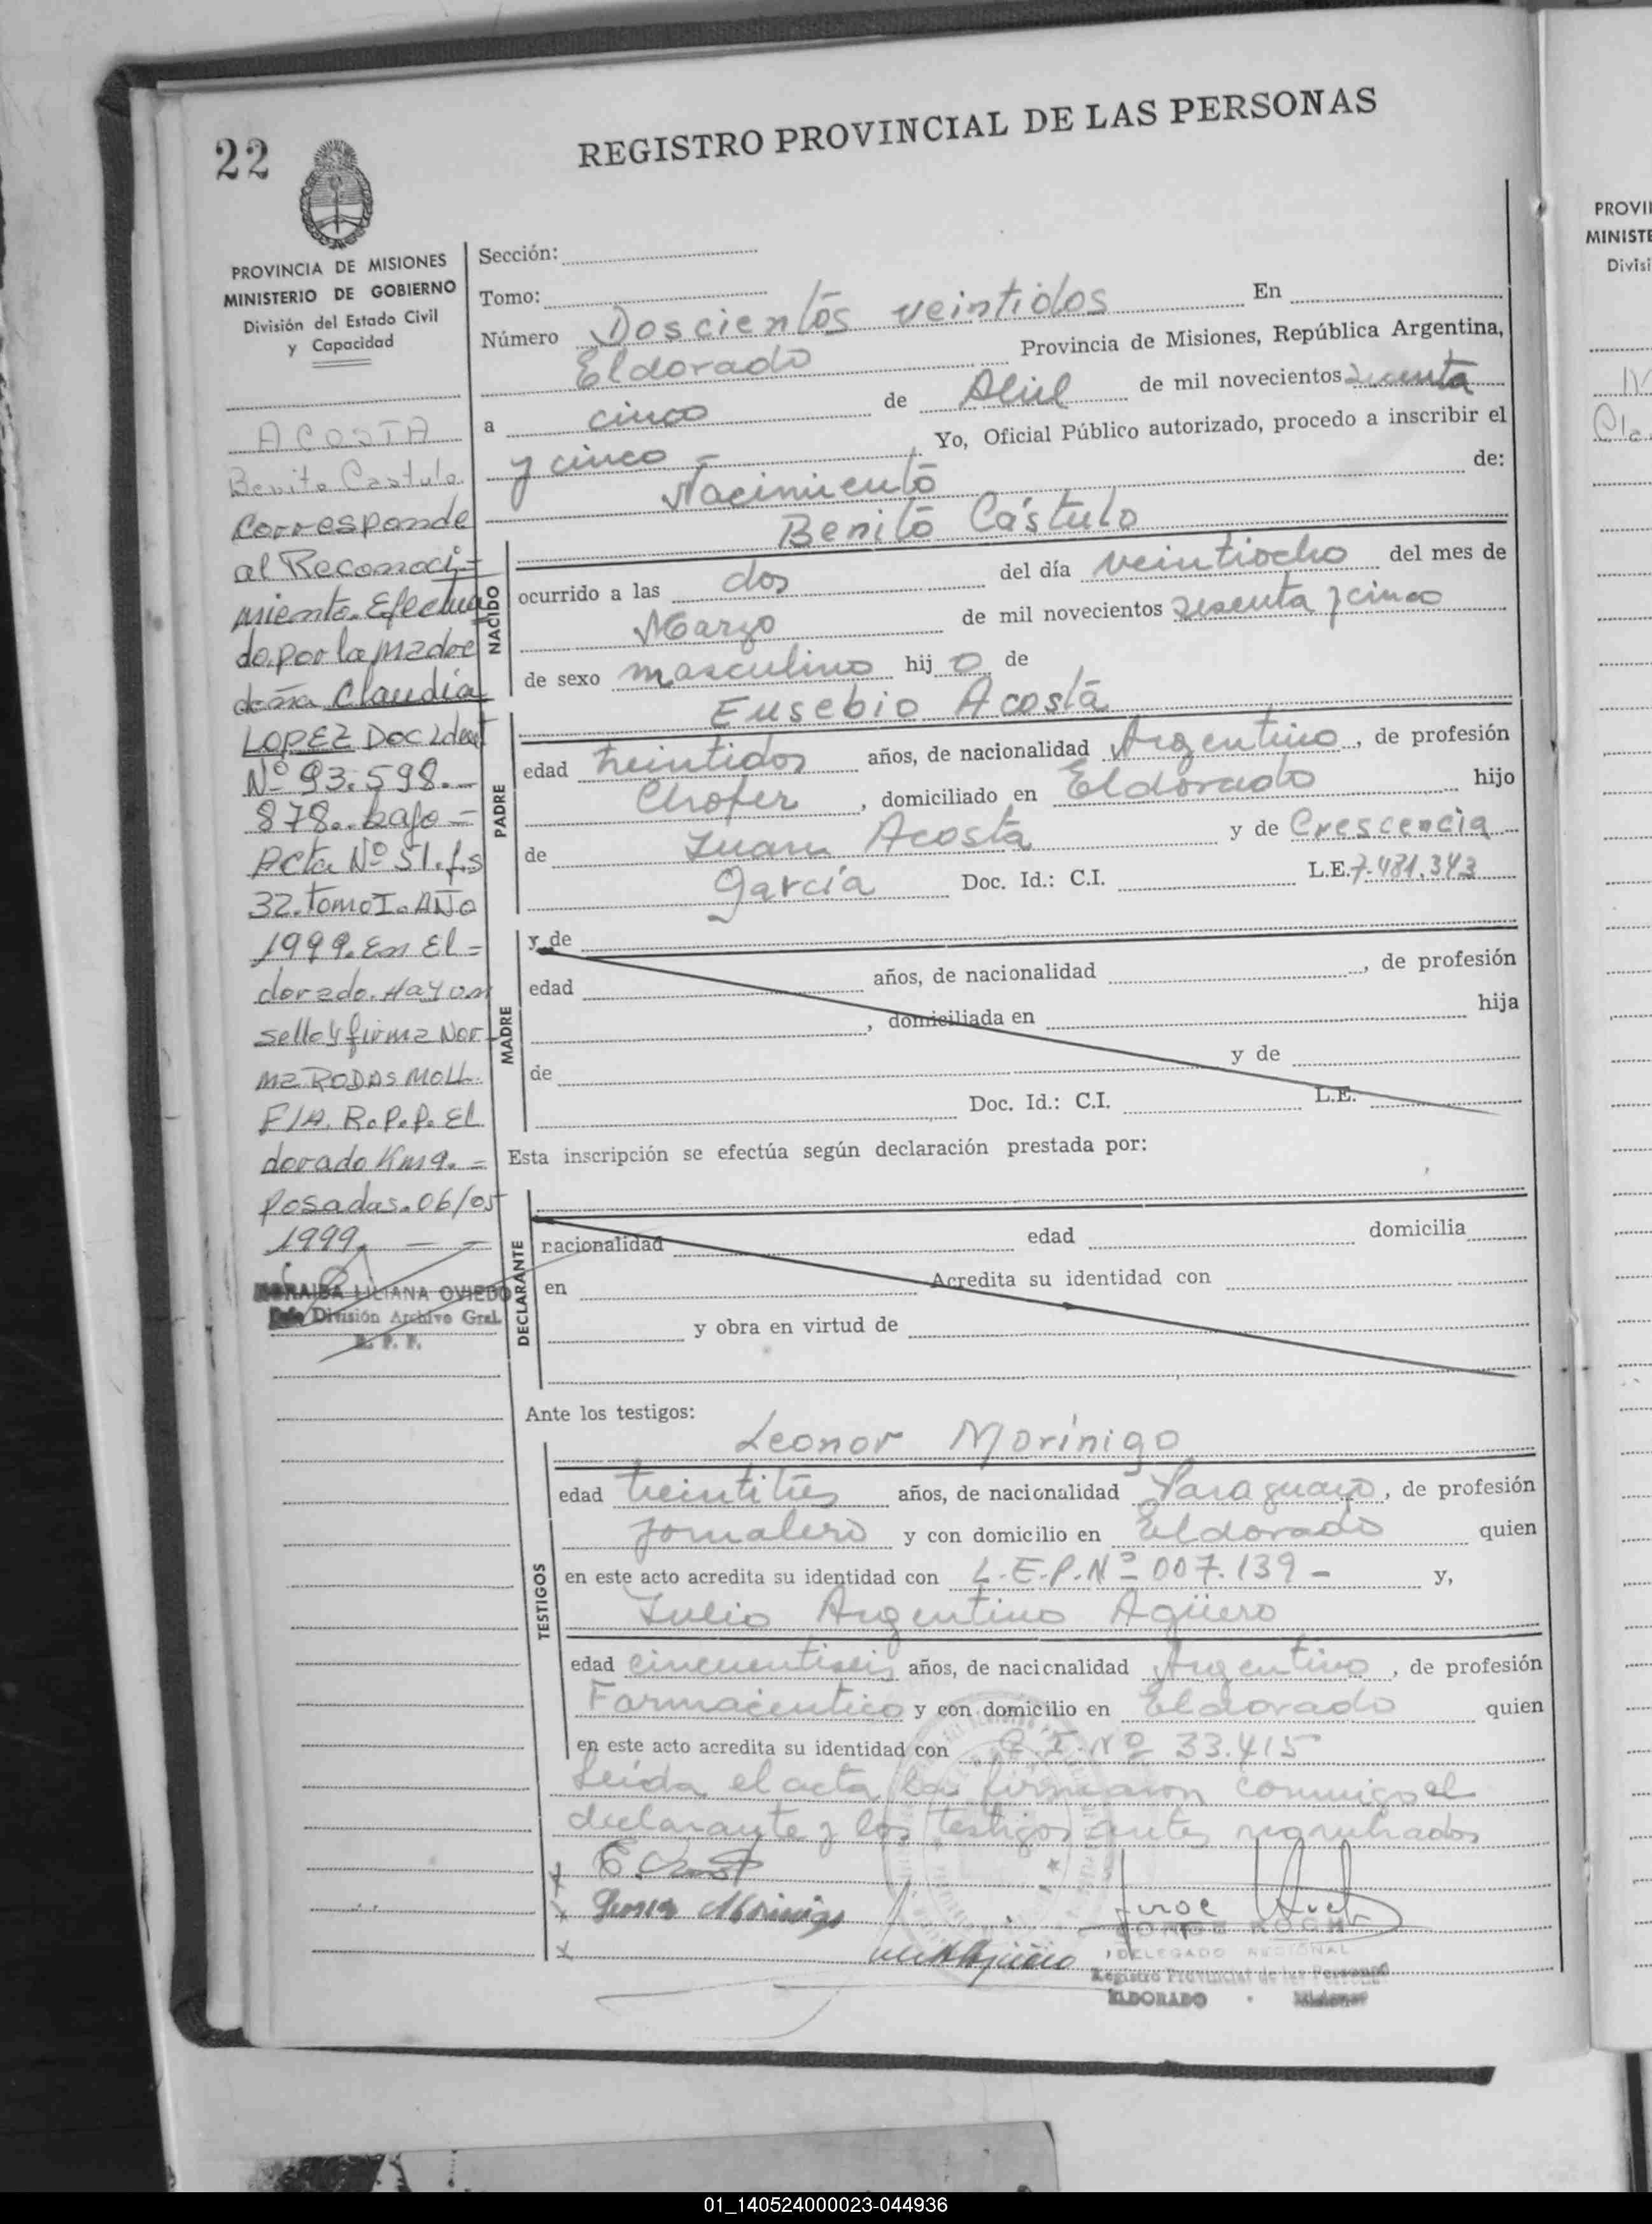 22
REGISTRO PROVINCIAL DE LAS PERSONAS
PROVINCIA DE MISIONES
MINISTERIO DE GOBIERNO
División del Estado Civil
y Capacidad
ACOSTA
Benito Castulo
Corresponde
al Reconoci=
miento. Efectua
do. por la madre
doña Claudia
LOPEZ Doc Ident
Nº 93.598.-
878.. bajo =
Acta Nº 51. fs
32. Tomo I. AÑO
1999. En El =
dorado. Hay un
sello y firma Nor-
ma RODAS MOLL.
F/A. R.P.P. El
dorado Km 9. =
Posadas. 06/05
1999.
LILIANA OVIEDO
Jefe División Archivo Gral.
R. P. P.
Sección:
Tomo:
Número Doscientos veintidos En
Eldorado Provincia de Misiones, República Argentina,
a cinco de Abril de mil novecientos sesenta
y cinco - Yo, Oficial Público autorizado, procedo a inscribir el
Nacimiento de:
NACIDO
Benito Cástulo
ocurrido a las dos del día veintiocho del mes de
Marzo de mil novecientos sesenta y cinco
de sexo masculino hij o de
PADRE
Eusebio Acosta
edad treintidos años, de nacionalidad Argentino, de profesión
Chofer, domiciliado en Eldorado hijo
de Juan Acosta y de Crescencia
García Doc. Id.: C.I. L.E. 7.481.343
MADRE
y de
edad años, de nacionalidad , de profesión
, domiciliada en hija
de y de
Doc. Id.: C.I. L.E.
Esta inscripción se efectúa según declaración prestada por:
DECLARANTE
nacionalidad edad domicilia
en Acredita su identidad con
y obra en virtud de
Ante los testigos:
TESTIGOS
Leonor Morínigo
edad treintitrés años, de nacionalidad Paraguayo, de profesión
Jornalero y con domicilio en Eldorado quien
en este acto acredita su identidad con L.E.P. Nº 007.139 - y,
Julio Argentino Agüero
edad cincuentiseis años, de nacionalidad Argentino, de profesión
Farmacéutico y con domicilio en Eldorado quien
en este acto acredita su identidad con C.I. Nº 33.415
Leída el acta la firmaron conmigo el
declarante y los testigos antes nombrados
Leonor Morinigo
JORGE KOCH
DELEGADO REGIONAL
Registro Provincial de las Personas
ELDORADO - Misiones
PROVI
MINISTE
Divisi
01_140524000023-044936